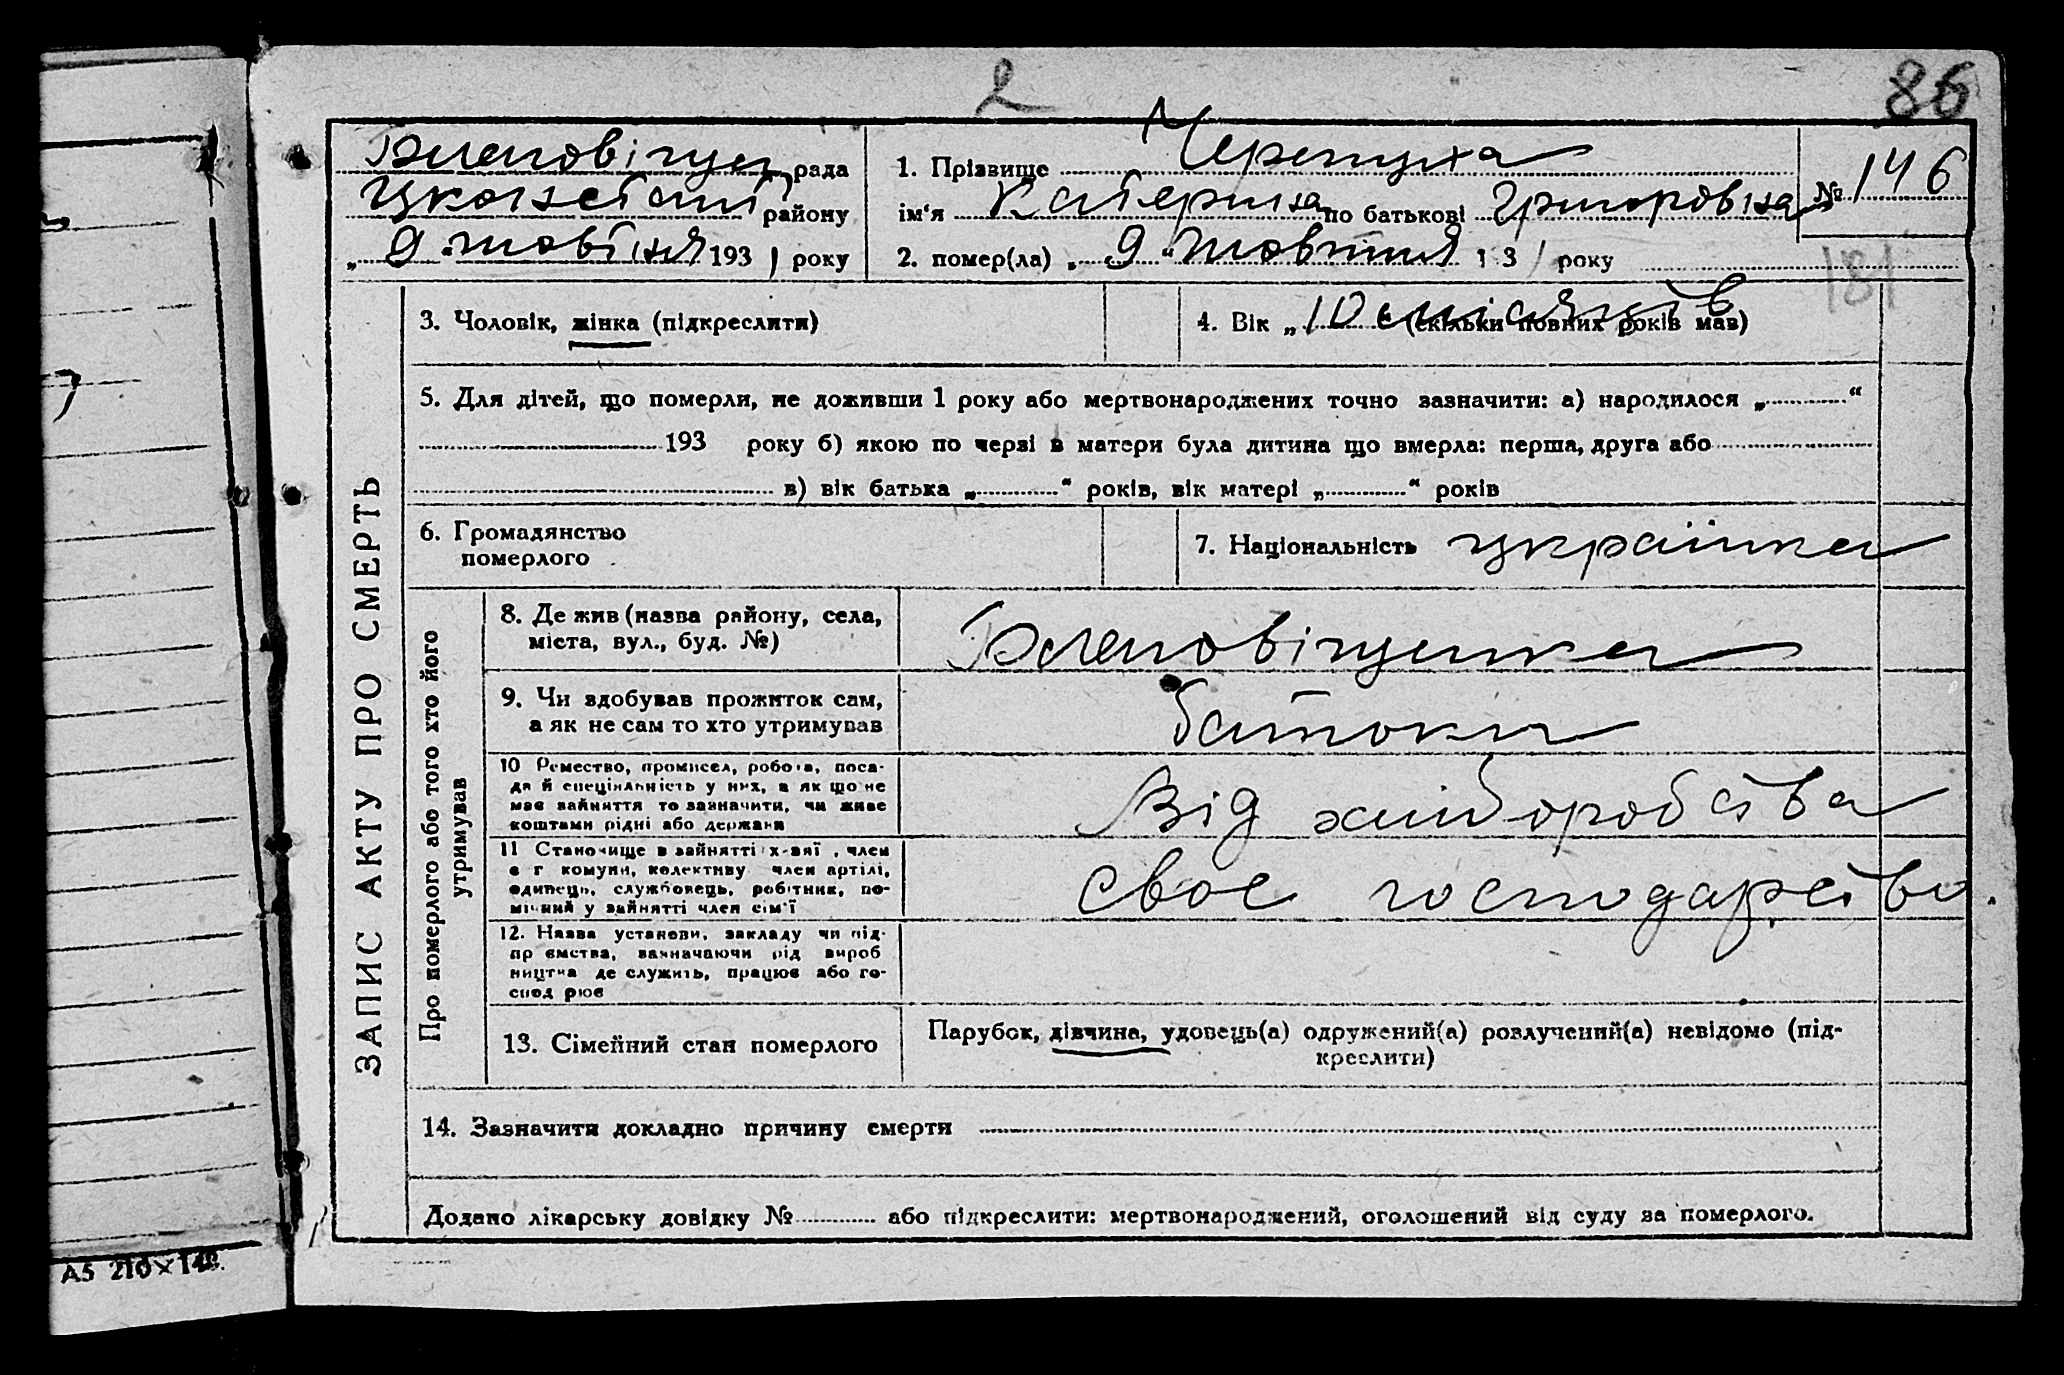 2
86
рада
району
„ 9 “ жовтня 193 1 року
1. Прізвище Черепуха
ім‘я Катерина по батькові Григоровна
№ 146
2. помер(ла) „ 9 “ жовтня 1 3 1 року
181
ЗАПИС АКТУ ПРО СМЕРТЬ
3. Чоловік, жінка (підкреслити)
4. Вік „ 10 місяців “ (скільки повних років мав)
5. Для дітей, що померли, не доживши 1 року або мертвонароджених точно зазначити: а) народилося „ “
193 року б) якою по черзі в матери була дитина що вмерла: перша, друга або
в) вік батька „ “ років, вік матері „ “ років
6. Громадянство
померлого
7. Національність українка
Про померлого або того хто його
утримував
8. Де жив (назва району, села,
міста, вул., буд. №)
9. Чи здобував прожиток сам,
а як не сам то хто утримував
батьки
10 Ремество, промисел, робота, поса-
да й спеціяльність у них, а як що не
має зайняття то зазначити, чи живе
коштами рідні або держави
Від хліборобства
11 Становище в зайнятті член
с г комуни, колективу член артілі,
одинець, службовець, робітник, по-
мічний у зайнятті член сім‘ї
своє господарство.
12. Назва установи, закладу чи під-
пр ємства, зазначаючи рід вироб
ництва де служить, працює або го-
спод рює
13. Сімейний стан померлого
Парубок, дівчина, удовець(а) одружений(а) розлучений(а) невідомо (під-
креслити)
14. Зазначити докладно причину смерти
Додано лікарську довідку № або підкреслити: мертвонароджений, оголошений від суду за померлого.
А5 210×148.